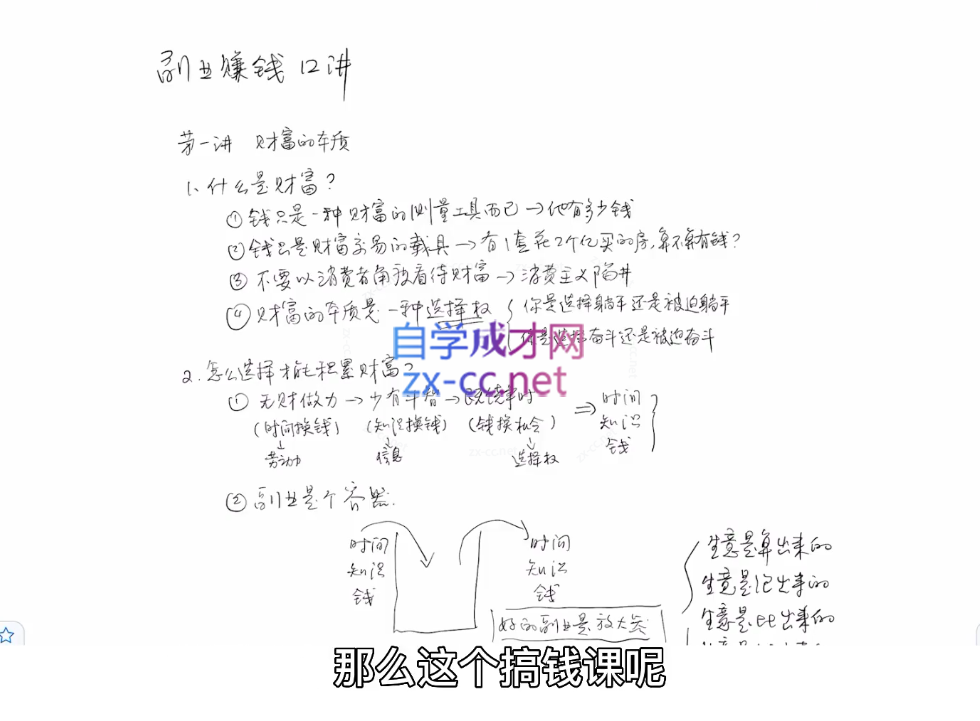 副业赚钱 12讲
第一讲 财富的本质
1. 什么是财富?
① 钱只是一种财富的测量工具而已→他有多少钱
② 钱只是财富交易的载具→有1套花2个亿买的房,算不算有钱?
③ 不要以消费者角度看待财富→消费主义陷阱
④ 财富的本质是一种选择权 { 你是选择躺平还是被迫躺平
你是选择奋斗还是被迫奋斗
自学成才网
zx-cc.net
2. 怎么选择才能积累财富?
① 无财做力→少有斗智→既饶争时 ⇒ 时间
(时间换钱) (知识换钱) (钱换机会) 知识
钱
↓ ↓ ↓
劳动力 信息 选择权
② 副业是个容器.
时间 时间
知识 知识
钱 钱
好的副业是放大器
生意是算出来的
生意是记出来的
生意是比出来的
那么这个搞钱课呢